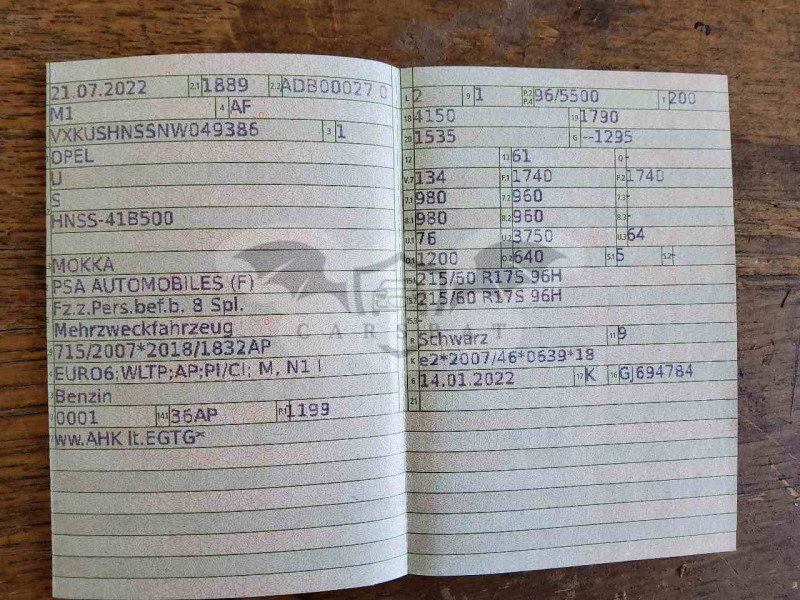 21.07.2022 2.1 1889 2.2 ADB00027 0
M1 4 AF
VXKUSHNSSNW049386 3 1
OPEL
U
S
HNSS-41B500
MOKKA
PSA AUTOMOBILES (F)
Fz.z.Pers.bef.b. 8 Spl.
Mehrzweckfahrzeug
715/2007*2018/1832AP
EURO6;WLTP;AP;PI/CI; M, N1 I
Benzin
0001 14.1 36AP P.1 1199
ww.AHK lt.EGTG*
L 2 9 1 P.2 P.4 96/5500 T 200
18 4150 19 1790
20 1535 G --1295
12 - 13 61 Q -
V.7 134 F.1 1740 F.2 1740
7.1 980 7.2 960 7.3 -
8.1 980 8.2 960 8.3 -
U.1 76 U.2 3750 U.3 64
O.1 1200 O.2 640 S.1 5 S.2 -
15.1 215/60 R17S 96H
15.2 215/60 R17S 96H
15.3 -
R Schwarz 11 9
K e2*2007/46*0639*18
6 14.01.2022 17 K 16 GJ694784
21
CARSBAT